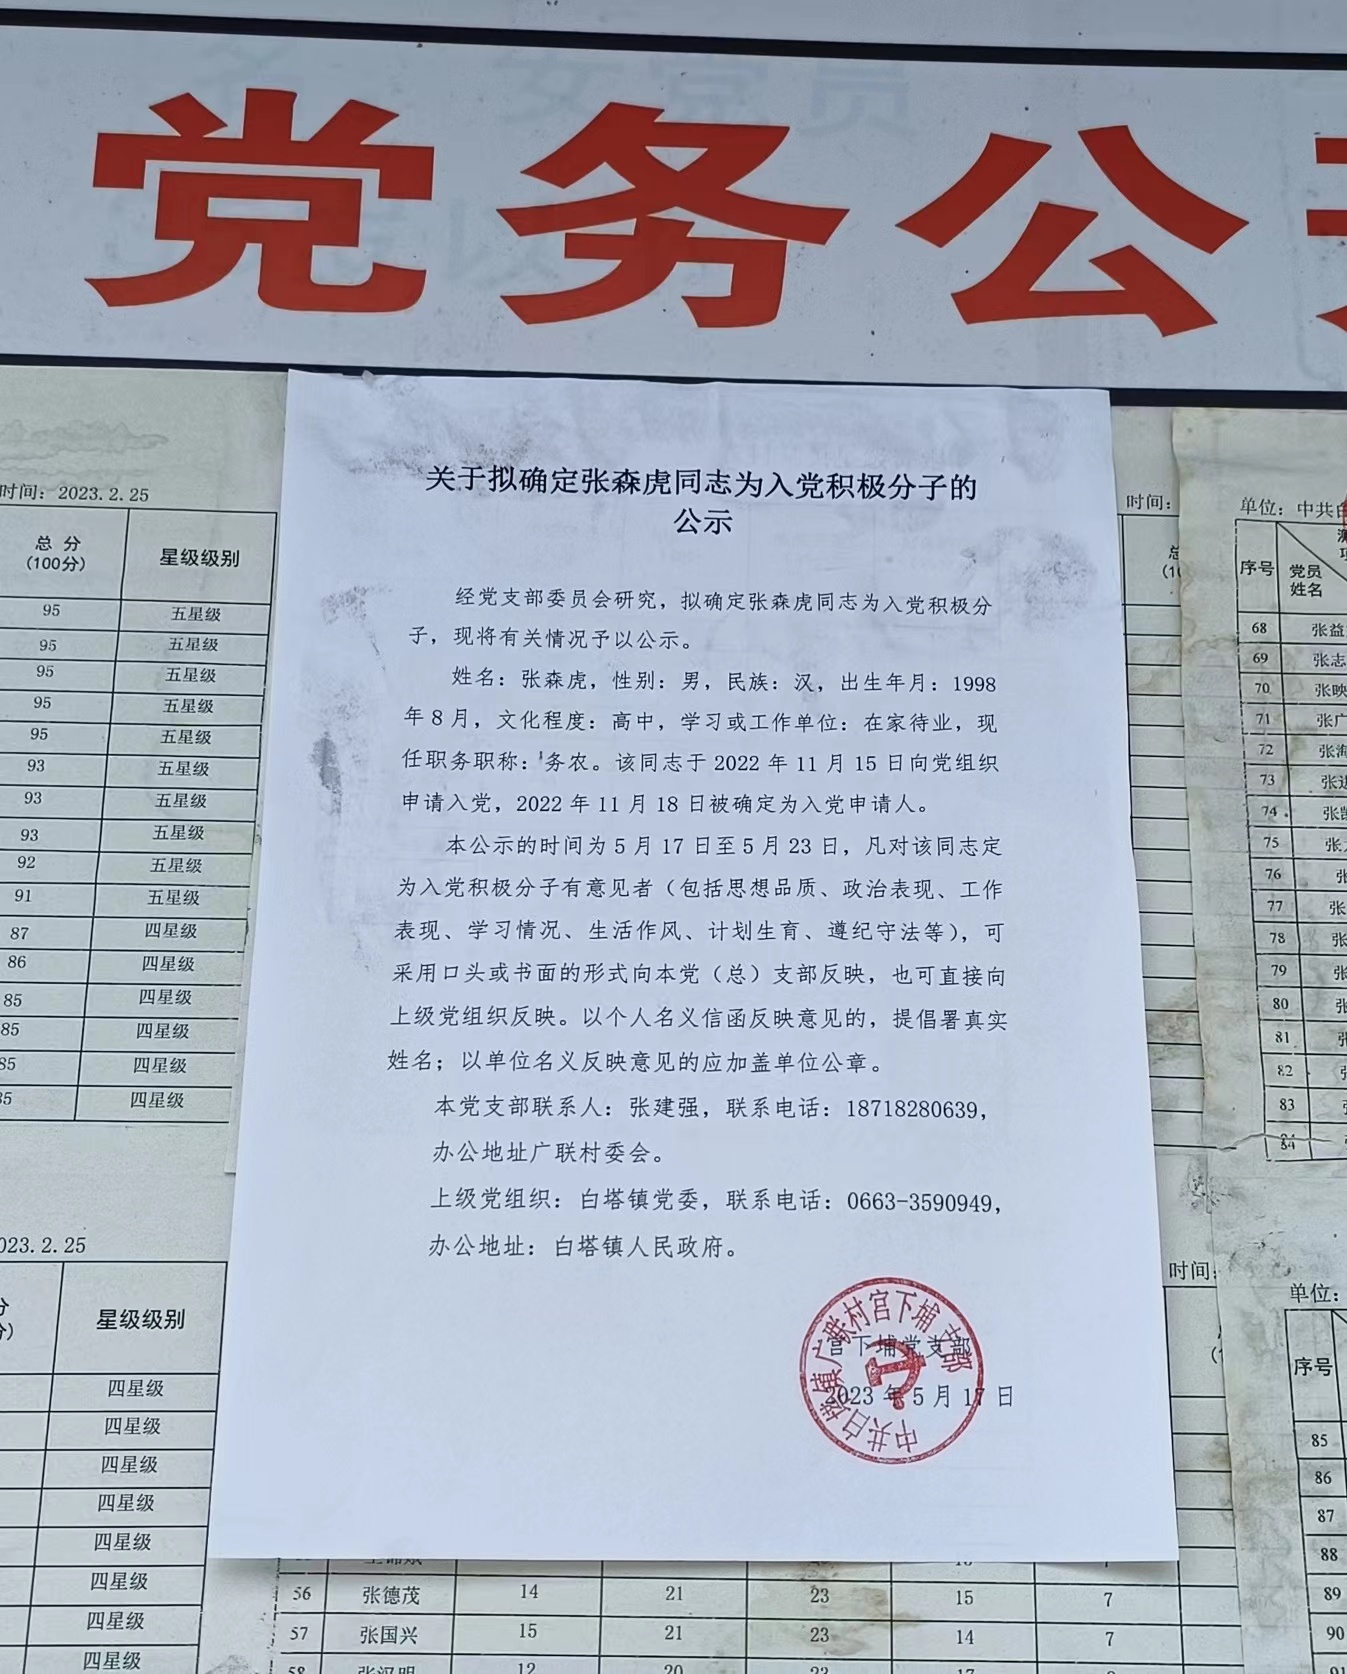 党务公
关于拟确定张森虎同志为入党积极分子的
公示
经党支部委员会研究，拟确定张森虎同志为入党积极分
子，现将有关情况予以公示。
姓名：张森虎，性别：男，民族：汉，出生年月：1998
年8月，文化程度：高中，学习或工作单位：在家待业，现
任职务职称：务农。该同志于2022年11月15日向党组织
申请入党，2022年11月18日被确定为入党申请人。
本公示的时间为5月17日至5月23日，凡对该同志定
为入党积极分子有意见者（包括思想品质、政治表现、工作
表现、学习情况、生活作风、计划生育、遵纪守法等），可
采用口头或书面的形式向本党（总）支部反映，也可直接向
上级党组织反映。以个人名义信函反映意见的，提倡署真实
姓名；以单位名义反映意见的应加盖单位公章。
本党支部联系人：张建强，联系电话：18718280639，
办公地址广联村委会。
上级党组织：白塔镇党委，联系电话：0663-3590949，
办公地址：白塔镇人民政府。
宫下埔党支部
2023年5月17日
中共白塔镇广联村宫下埔支部
时间：2023.2.25
总分
（100分） 星级级别
95 五星级
95 五星级
95 五星级
95 五星级
95 五星级
93 五星级
93 五星级
93 五星级
92 五星级
91 五星级
87 四星级
86 四星级
85 四星级
85 四星级
85 四星级
85 四星级
023.2.25
分 星级级别
四星级
四星级
四星级
四星级
四星级
四星级
四星级
四星级
56 张德茂 14 21 23 15 7
57 张国兴 15 21 23 14 7
58 张汉明 12 20 23 17
时间：
单位：中共白
序号 党员
姓名
68 张益
69 张志
70 张映
71 张广
72 张海
73 张进
74 张凯
75 张
76 张
77 张
78 张
79 张
80 张
81 张
82 张
83
84
时间：
单位：
序号
85
86
87
88
89
90